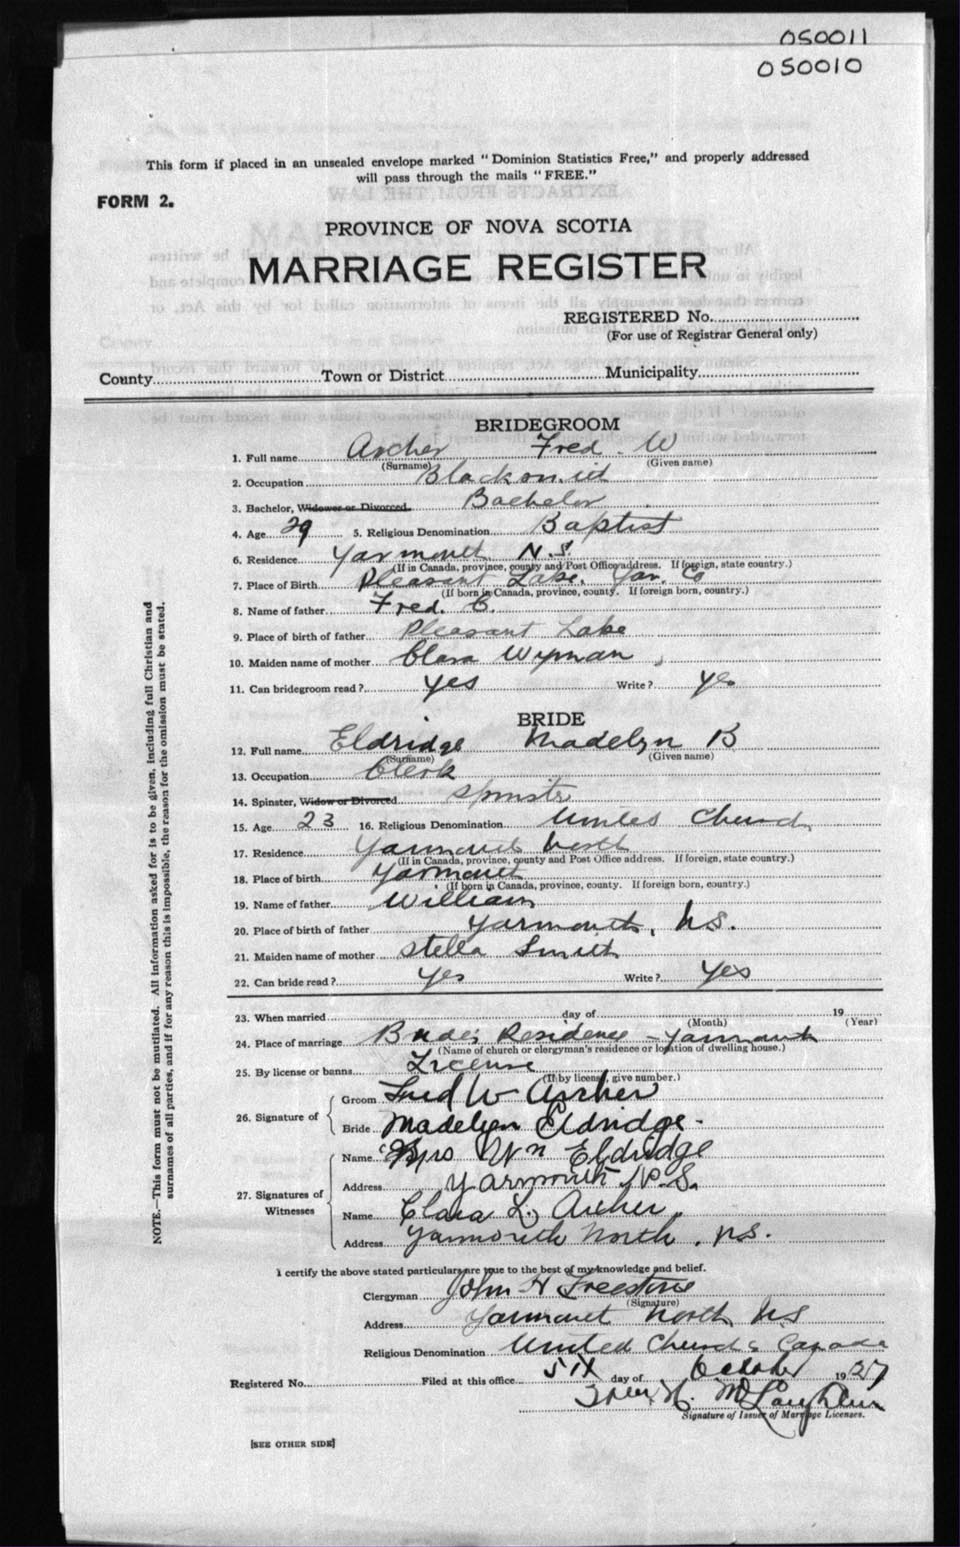 050011
050010
This form if placed in an unsealed envelope marked "Dominion Statistics Free," and properly addressed
will pass through the mails "FREE."
FORM 2.
PROVINCE OF NOVA SCOTIA
MARRIAGE REGISTER
REGISTERED No.
(For use of Registrar General only)
County Town or District Municipality
BRIDEGROOM
1. Full name Archer Fred. W
(Surname) (Given name)
2. Occupation
3. Bachelor, Widower or Divorced Bachelor
4. Age 29 5. Religious Denomination Baptist
6. Residence Yarmouth N.S
(If in Canada, province, county and Post Office address. If foreign, state country.)
7. Place of Birth Pleasant Lake. Yar. Co
(If born in Canada, province, county. If foreign born, country.)
8. Name of father Fred. C.
9. Place of birth of father Pleasant Lake
10. Maiden name of mother Clara Wyman
11. Can bridegroom read? Yes Write? Yes
BRIDE
12. Full name Eldridge Madelyn B
(Surname) (Given name)
13. Occupation Clerk
14. Spinster, Widow or Divorced Spinster
15. Age 23 16. Religious Denomination United Church
17. Residence Yarmouth North
(If in Canada, province, county and Post Office address. If foreign, state country.)
18. Place of birth Yarmouth
(If born in Canada, province, county. If foreign born, country.)
19. Name of father William
20. Place of birth of father Yarmouth, N.S.
21. Maiden name of mother Stella Smith
22. Can bride read? Yes Write? Yes
23. When married day of 19
(Month) (Year)
24. Place of marriage Brides Residence - Yarmouth
(Name of church or clergyman's residence or location of dwelling house.)
25. By license or banns License
(If by license, give number.)
26. Signature of
Groom Fred W Archer
Bride Madelyn Eldridge -
27. Signatures of Witnesses
Name Mrs Wm Eldridge
Address Yarmouth N.S.
Name Clara L. Archer.
Address Yarmouth North, N.S.
I certify the above stated particulars are true to the best of my knowledge and belief.
Clergyman John H Freestone
(Signature)
Address Yarmouth North NS
Religious Denomination United Church of Canada
Registered No. Filed at this office 5th day of October 1927
H. McLaughlin
Signature of Issuer of Marriage Licenses.
[SEE OTHER SIDE]
NOTE.—This form must not be mutilated. All information asked for is to be given, including full Christian and
surnames of all parties, and if for any reason this is impossible, the reason for the omission must be stated.